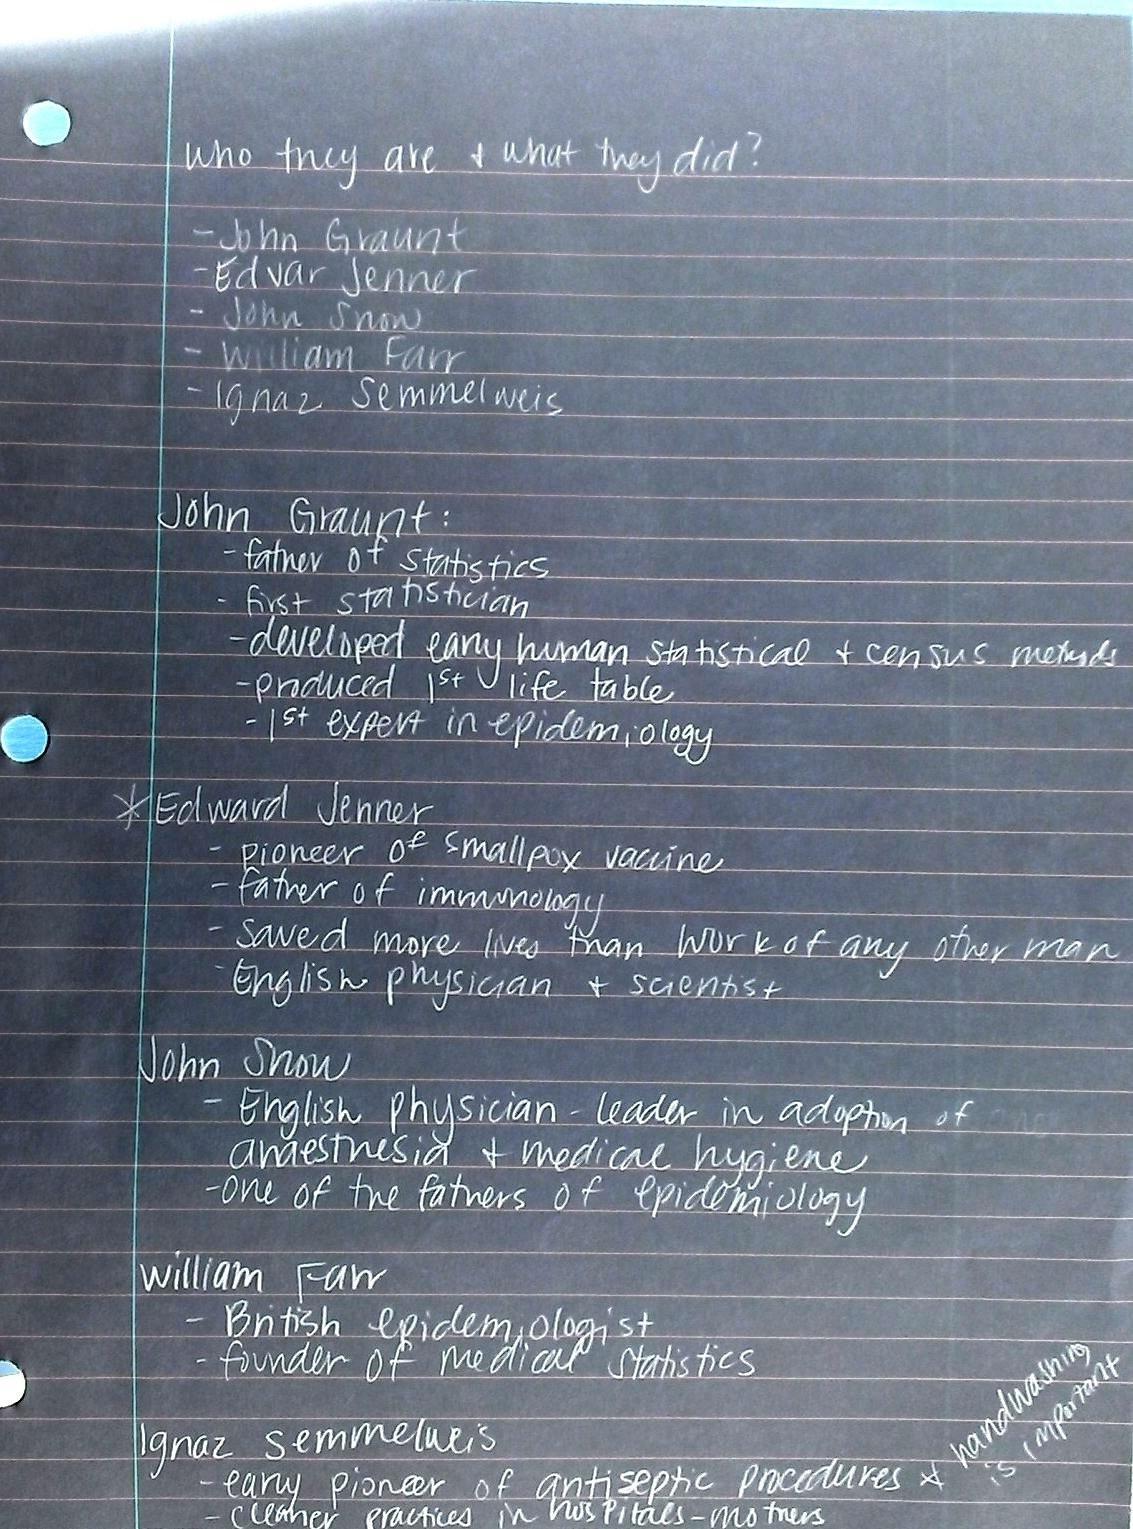 who they are + what they did?
- John Graunt
- Edvar Jenner
- John Snow
- William Farr
- Ignaz Semmelweis
John Graunt:
- father of statistics
- first statistician
- developed early human statistical + census methods
- produced 1st life table
- 1st expert in epidemiology
* Edward Jenner
- pioneer of smallpox vaccine
- father of immunology
- saved more lives than work of any other man
- English physician + scientist
John Snow
- English physician - leader in adoption of
anaesthesia + medical hygiene
- one of the fathers of epidemiology
William Farr
- British epidemiologist
- founder of medical statistics
Ignaz Semmelweis
- early pioneer of antiseptic procedures * handwashing
is important
- cleaner practices in hospitals - mothers